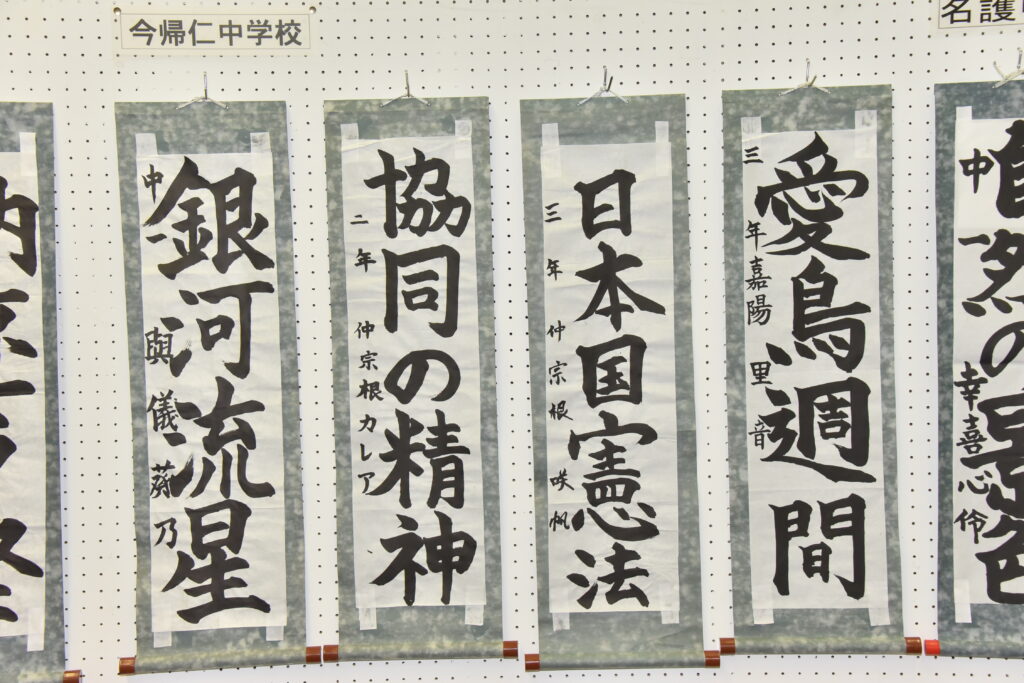 今帰仁中学校
名護
銀河流星
中一 與儀葵乃
協同の精神
二年 仲宗根カレア
日本国憲法
三年 仲宗根咲帆
愛鳥週間
三年 嘉陽里音
自然の景色
中一 幸喜心伶